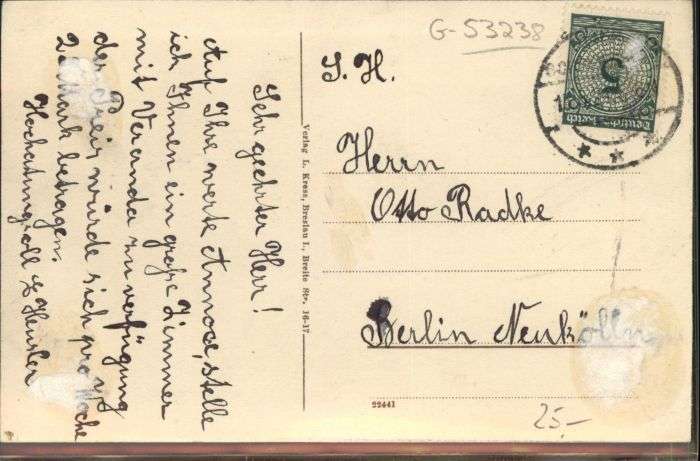 Sehr geehrter Herr!
Auf Ihre werte Annoce, stelle
ich Ihnen ein große Zimmer
mit Veranda zu verfügung
der Preis würde sich pro Woche
Mark betragen.
Hochachtungsvoll
Verlag L. Kress, Breslau I., Breite Str. 16-17.
G-53238
S. H.
Herrn
Otto Radke
Berlin Neukölln
22441
25,-
5
Deutsches Reich